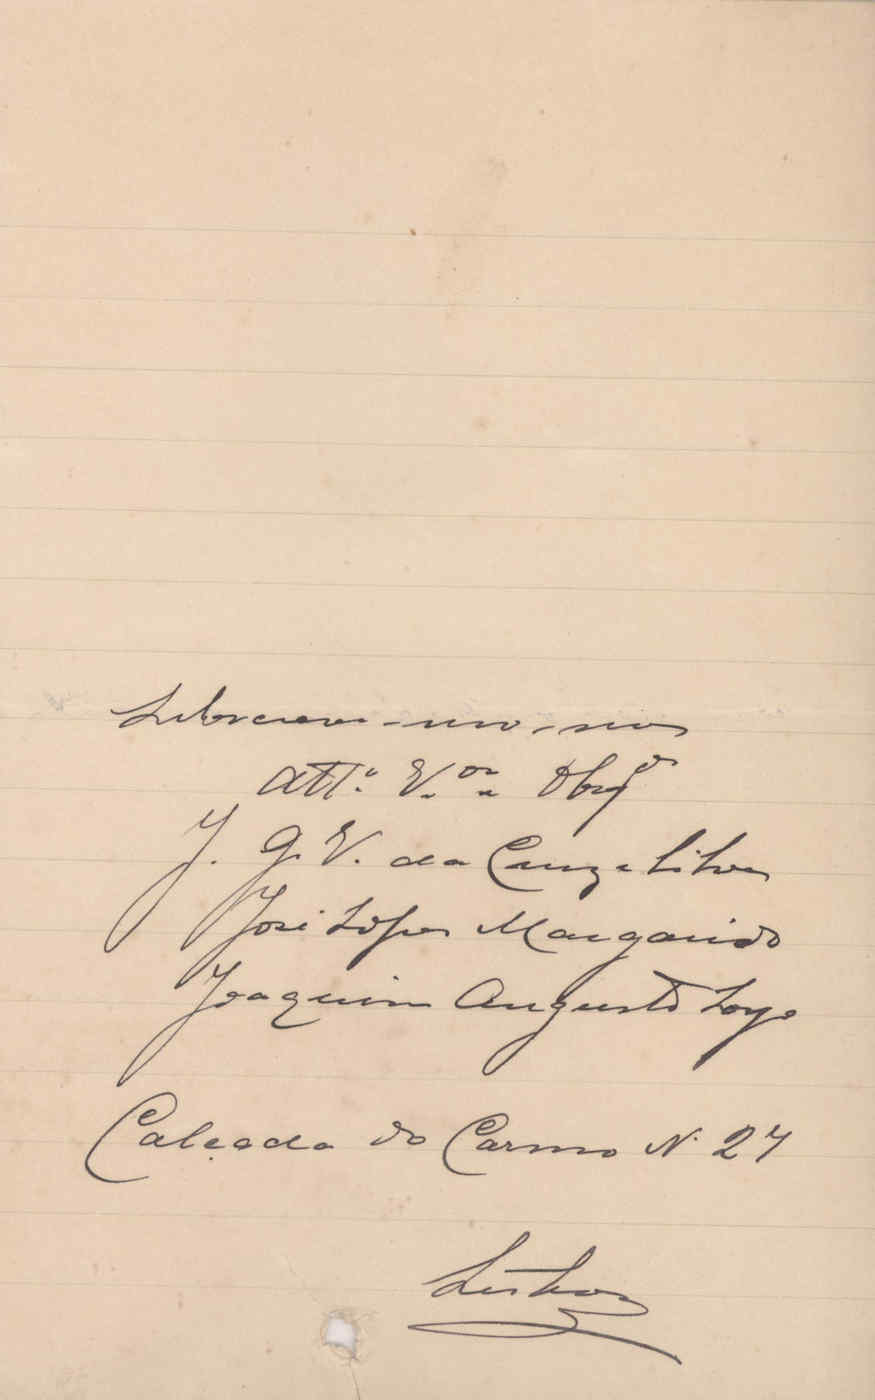 Subscreve-mo-nos
Attº. V.ores Obrgdos
J. G. V. da Cunz e Silva
José Lopes Margarido
Joaquim Augusto Loyo
Calçada do Carmo N. 27
Lisboa